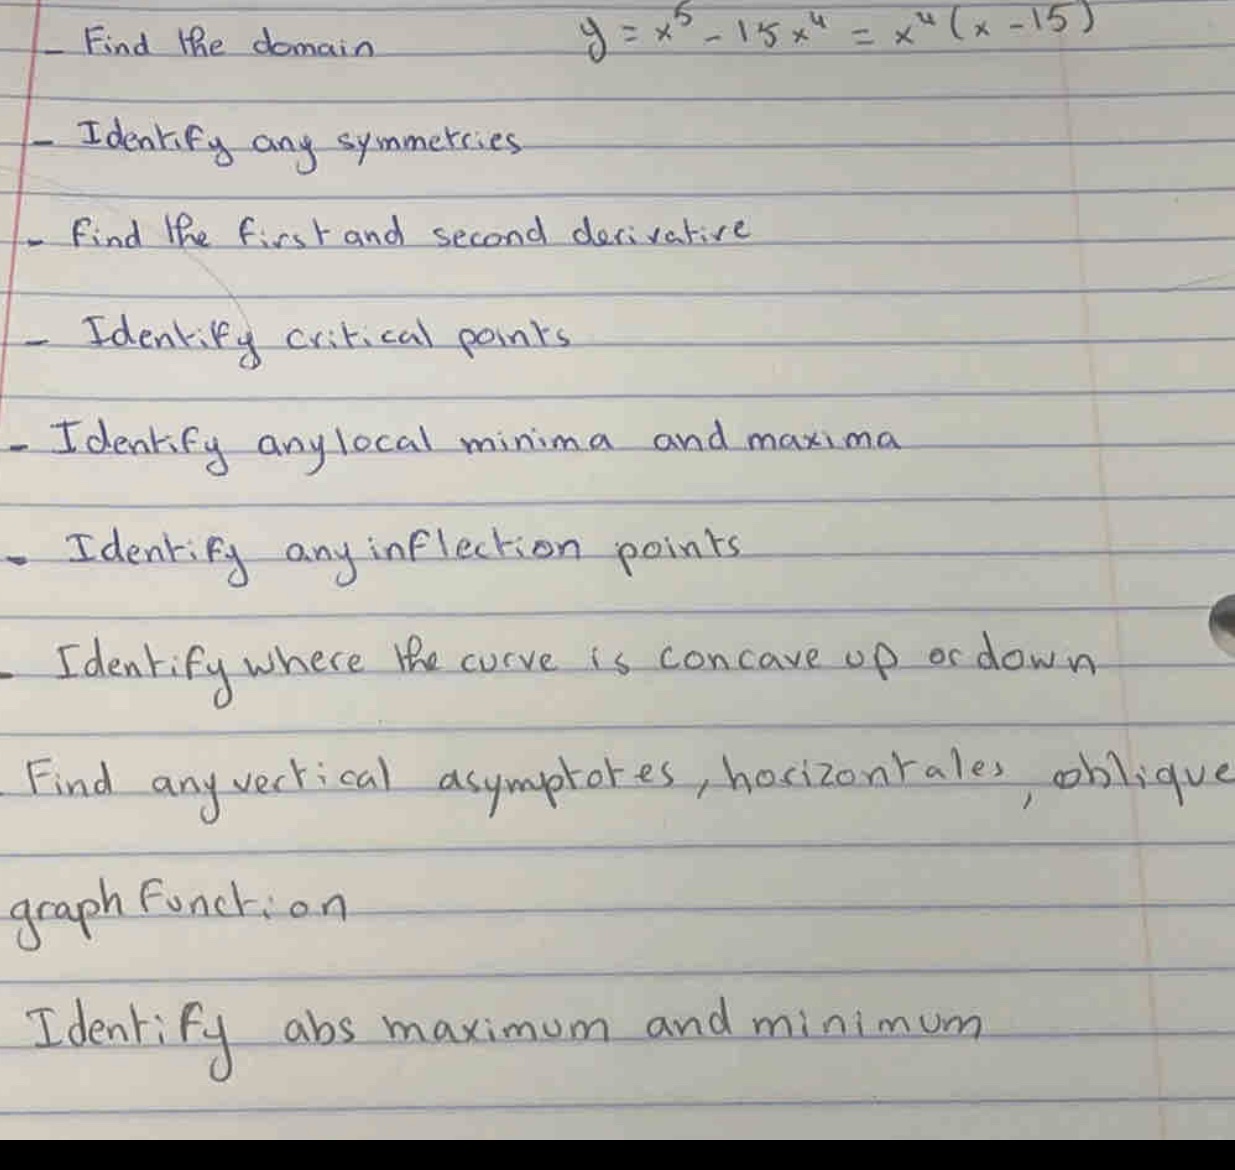 - Find the domain y = x⁵ - 15x⁴ = x⁴(x - 15)
- Identify any symmetries
- find the first and second derivative
- Identify critical points
- Identify any local minima and maxima
- Identify any inflection points
- Identify where the curve is concave up or down
- Find any vertical asymptotes, horizontales, oblique
graph function
Identify abs maximum and minimum